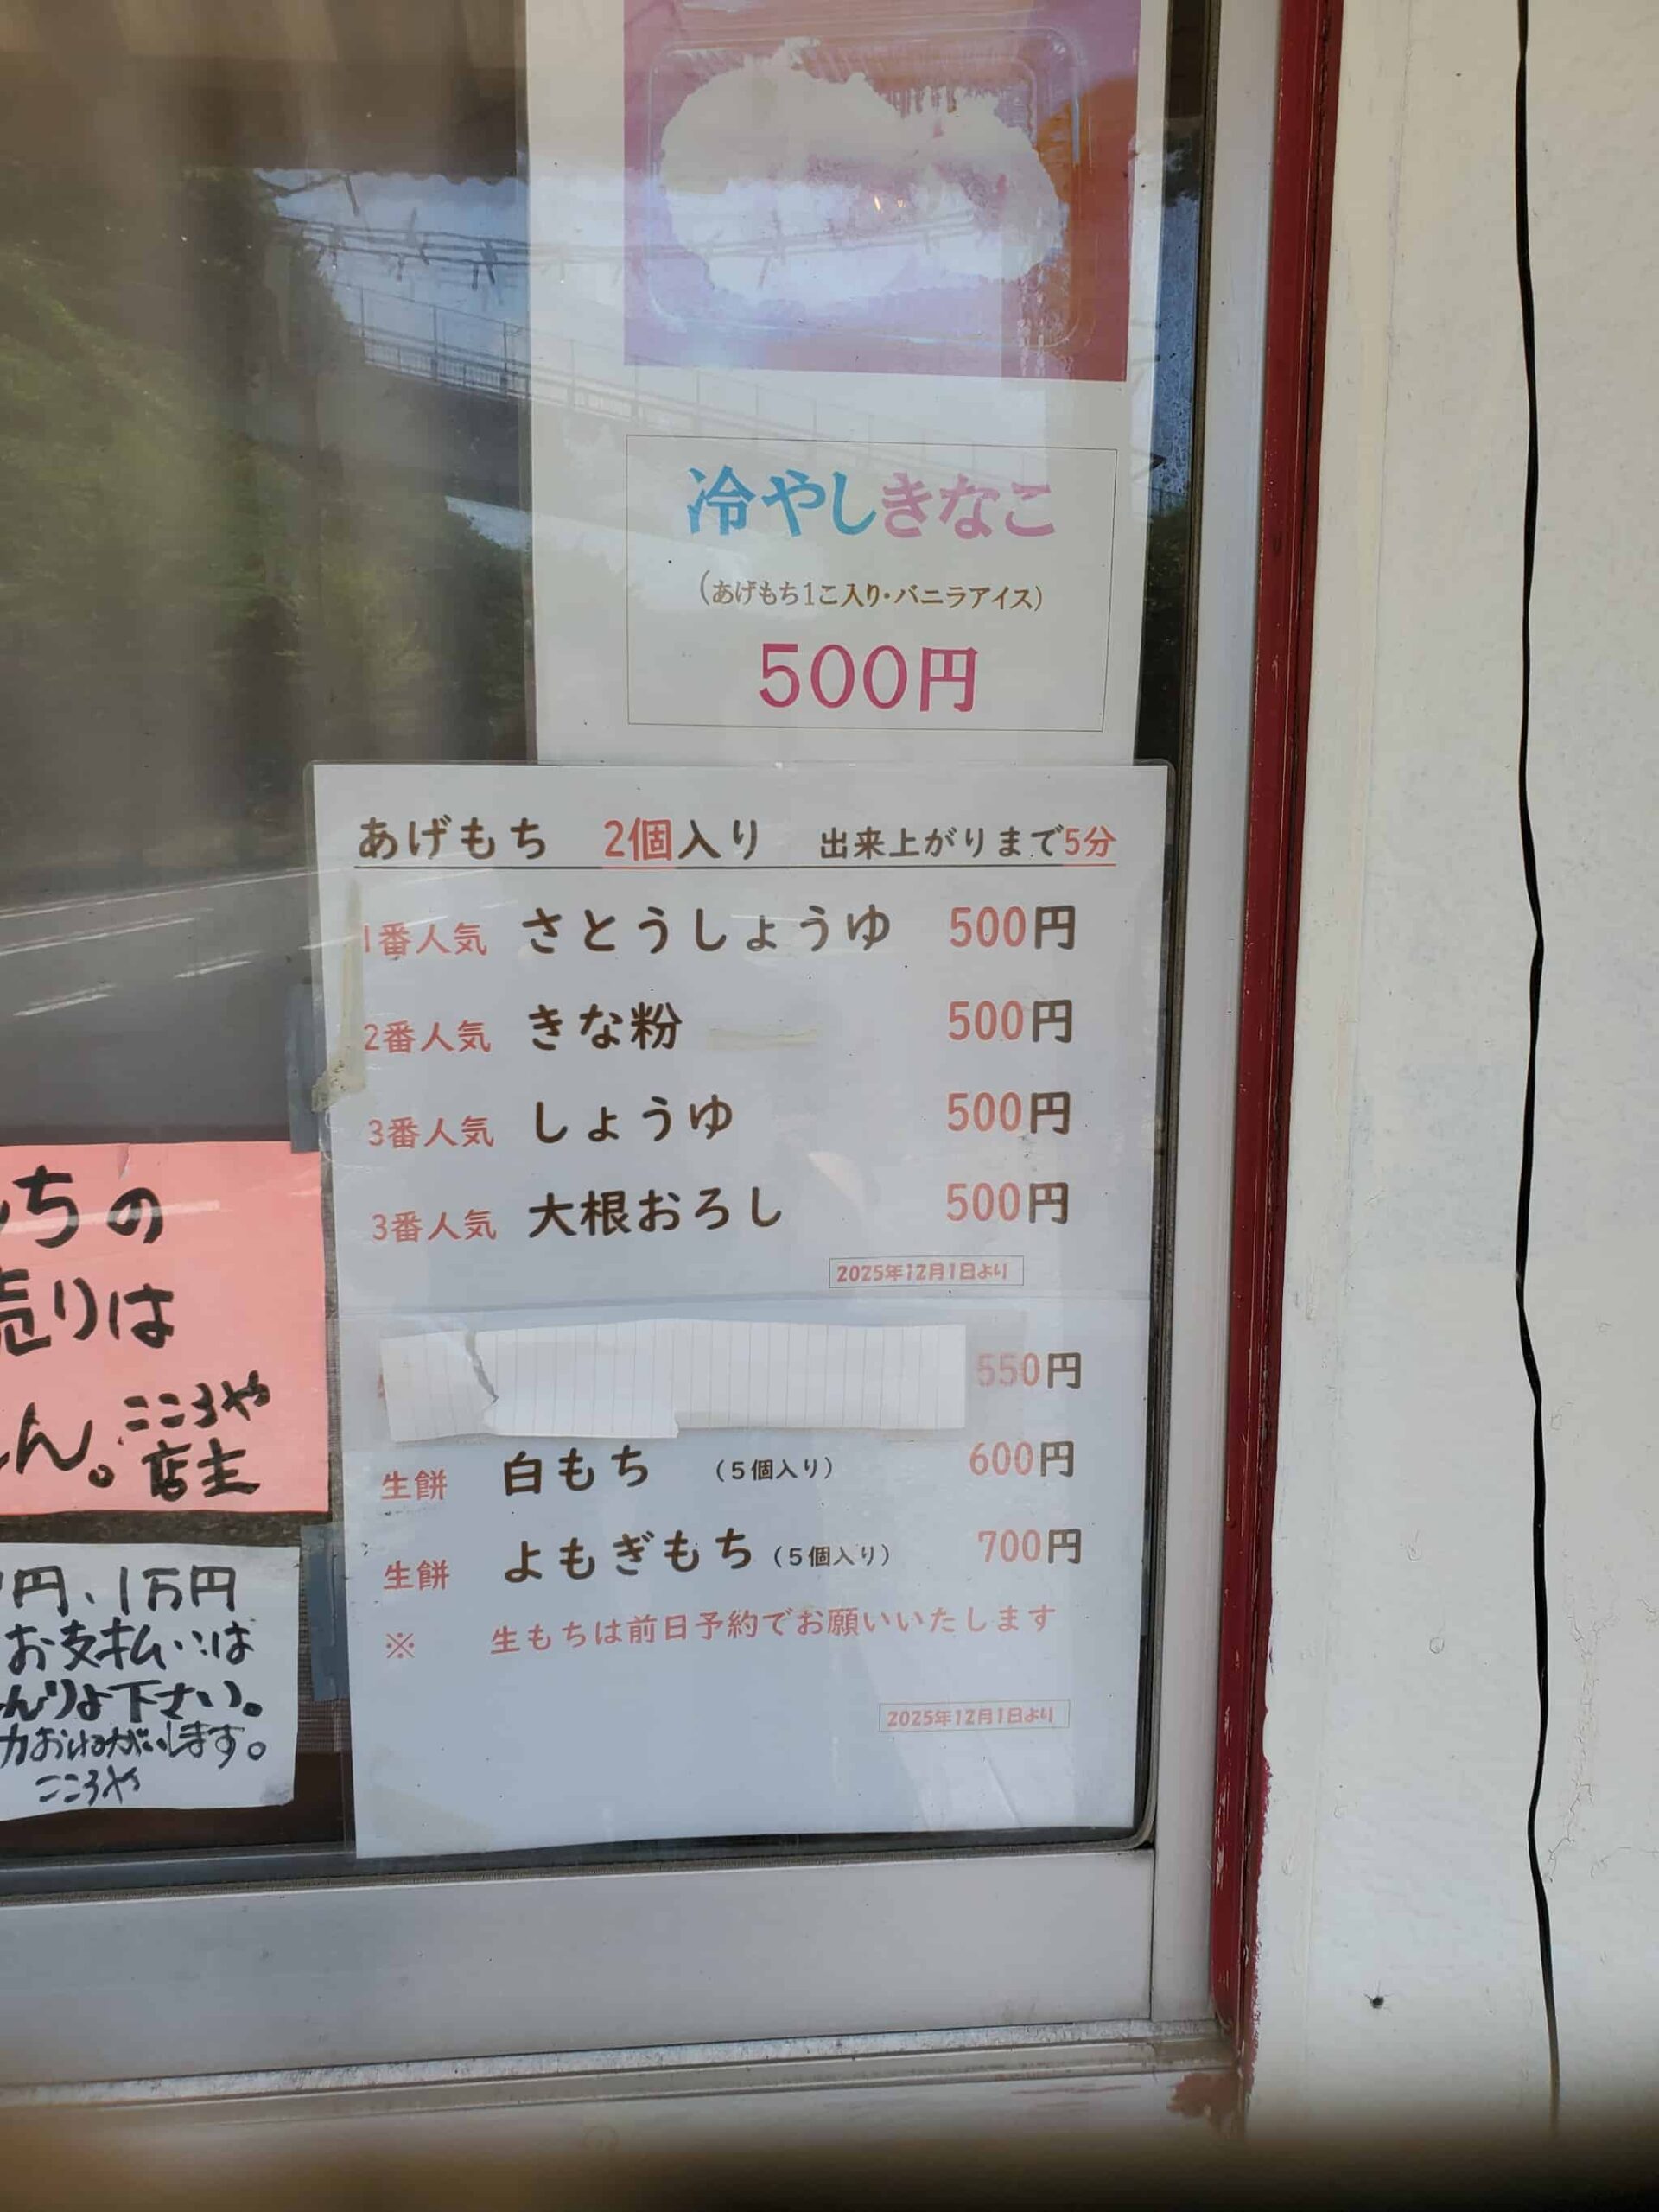 冷やしきなこ
(あげもち1こ入り・バニラアイス)
500円
あげもち 2個入り 出来上がりまで5分
1番人気 さとうしょうゆ 500円
2番人気 きな粉 500円
3番人気 しょうゆ 500円
3番人気 大根おろし 500円
2025年12月1日より
550円
生餅 白もち (5個入り) 600円
生餅 よもぎもち (5個入り) 700円
※ 生もちは前日予約でお願いいたします
2025年12月1日より
ちの
売りは
ん。こころや
店主
円、1万円
お支払いは
んりょ下さい。
力おねがいします。
こころや